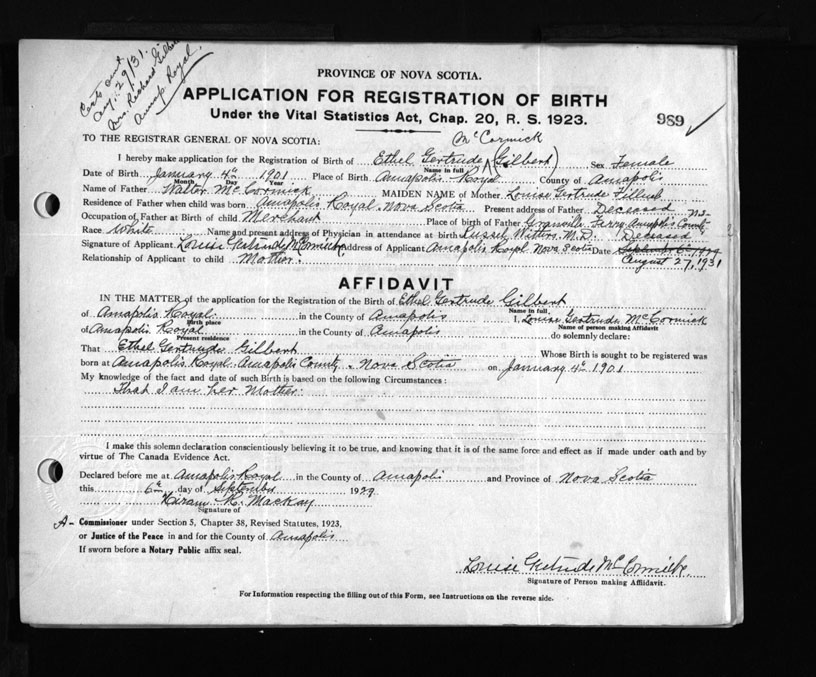 Certs sent
Aug. 29/31.
Mrs Richard Gilbert
Annap Royal.
PROVINCE OF NOVA SCOTIA.
APPLICATION FOR REGISTRATION OF BIRTH
Under the Vital Statistics Act, Chap. 20, R. S. 1923.
989
TO THE REGISTRAR GENERAL OF NOVA SCOTIA:
McCormick
I hereby make application for the Registration of Birth of Ethel Gertrude (Gilbert) Sex Female
Name in full
Date of Birth January 4th 1901 Place of Birth Annapolis Royal County of Annapolis
Month Day Year
Name of Father Walter McCormick MAIDEN NAME of Mother Louise Gertrude
Residence of Father when child was born Annapolis Royal Nova Scotia Present address of Father Deceased
Occupation of Father at Birth of child Merchant Place of birth of Father Granville Ferry Annapolis County NS
Race White Name and present address of Physician in attendance at birth Russel Withers M.D. Deceased
Signature of Applicant Louise Gertrude McCormick Address of Applicant Annapolis Royal Nova Scotia Date September 6 1929
Relationship of Applicant to child Mother. August 27, 1931
AFFIDAVIT
IN THE MATTER of the application for the Registration of the Birth of Ethel Gertrude Gilbert
Name in full,
of Annapolis Royal in the County of Annapolis I, Louise Gertrude McCormick
Birth place Name of person making Affidavit
of Annapolis Royal in the County of Annapolis do solemnly declare:
Present residence
That Ethel Gertrude Gilbert Whose Birth is sought to be registered was
born at Annapolis Royal Annapolis County Nova Scotia on January 4th 1901
My knowledge of the fact and date of such Birth is based on the following Circumstances:
That I am her Mother.
I make this solemn declaration conscientiously believing it to be true, and knowing that it is of the same force and effect as if made under oath and by
virtue of The Canada Evidence Act.
Declared before me at Annapolis Royal in the County of Annapolis and Province of Nova Scotia
this 6th day of September 1929
Hiram K. MacKay
Signature of
A- Commissioner under Section 5, Chapter 38, Revised Statutes, 1923,
or Justice of the Peace in and for the County of Annapolis
If sworn before a Notary Public affix seal.
Louise Gertrude McCormick
Signature of Person making Affidavit.
For Information respecting the filling out of this Form, see Instructions on the reverse side.